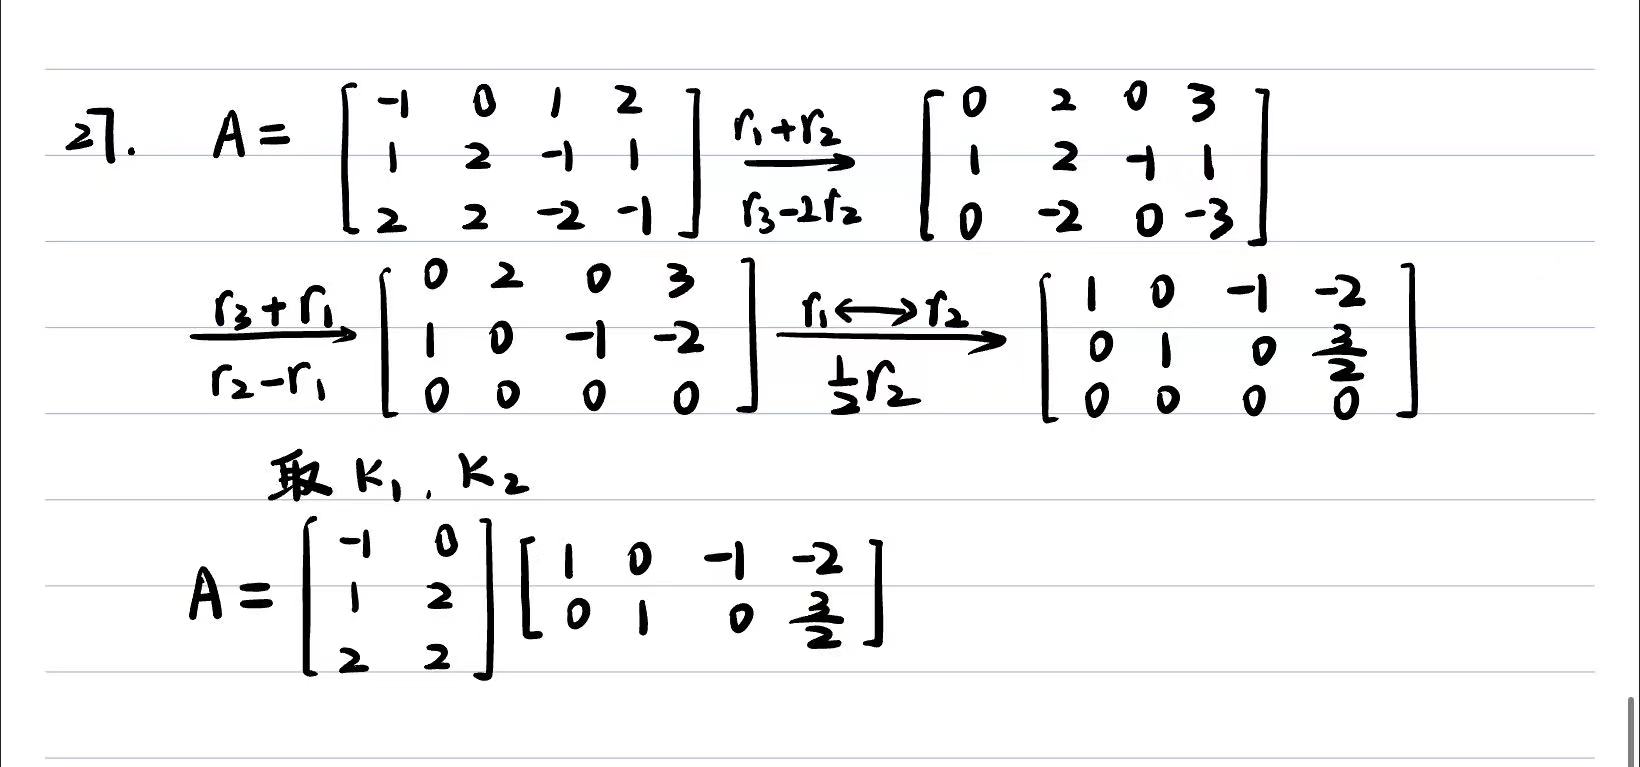 27. A = [-1 0 1 2; 1 2 -1 1; 2 2 -2 -1] r₁+r₂ r₃-2r₂ → [0 2 0 3; 1 2 -1 1; 0 -2 0 -3]
r₃+r₁ r₂-r₁ → [0 2 0 3; 1 0 -1 -2; 0 0 0 0] r₁↔r₂ ½r₂ → [1 0 -1 -2; 0 1 0 3/2; 0 0 0 0]
取 K₁, K₂
A = [-1 0; 1 2; 2 2] [1 0 -1 -2; 0 1 0 3/2]